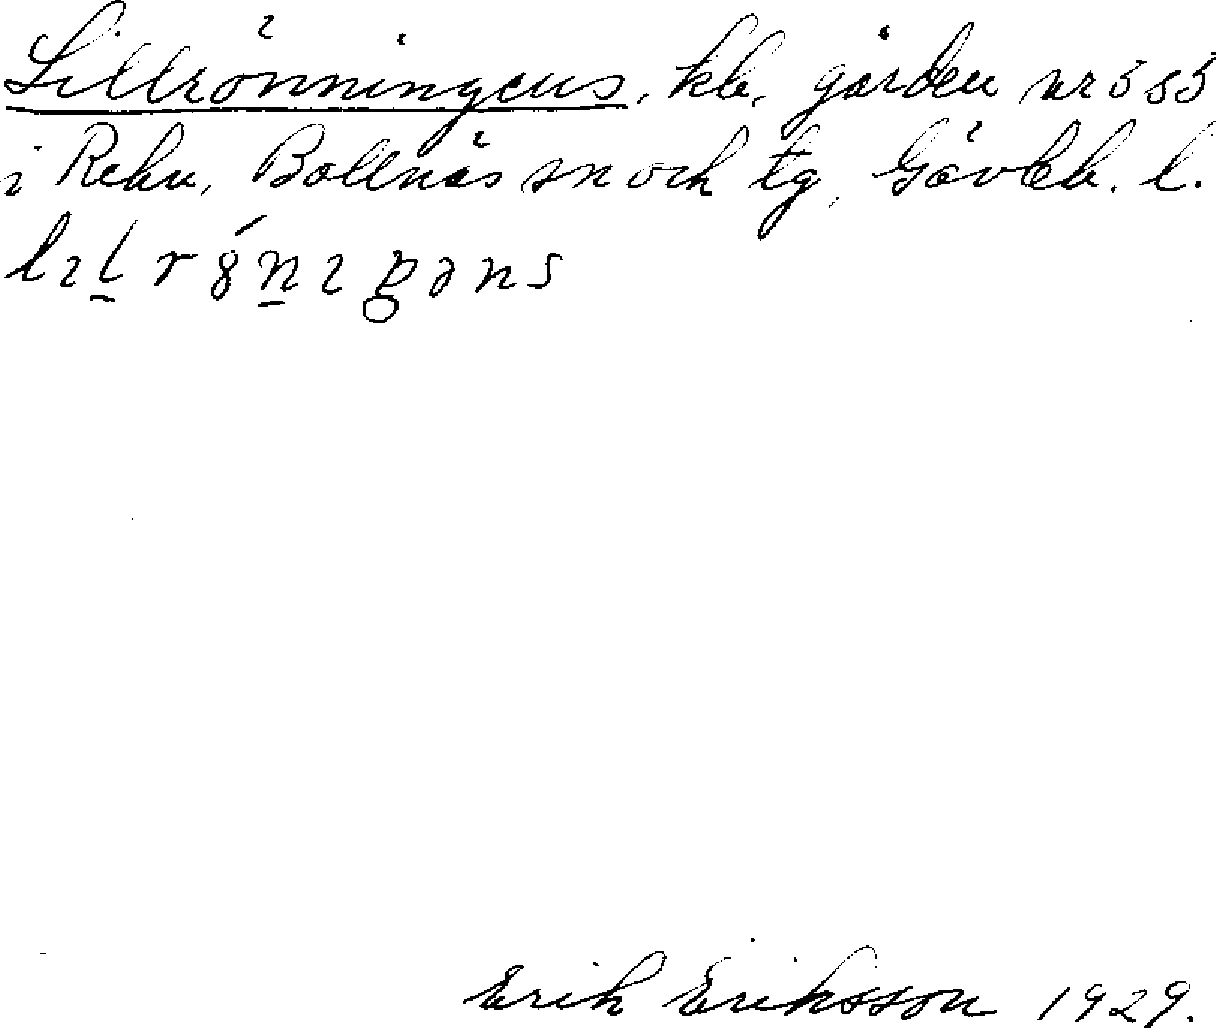 Lillrönningens, kb. gården nr 3 o 5
i Rehn, Bollnäs sn och tg, Gävleb. l.
Erik Eriksson 1929.